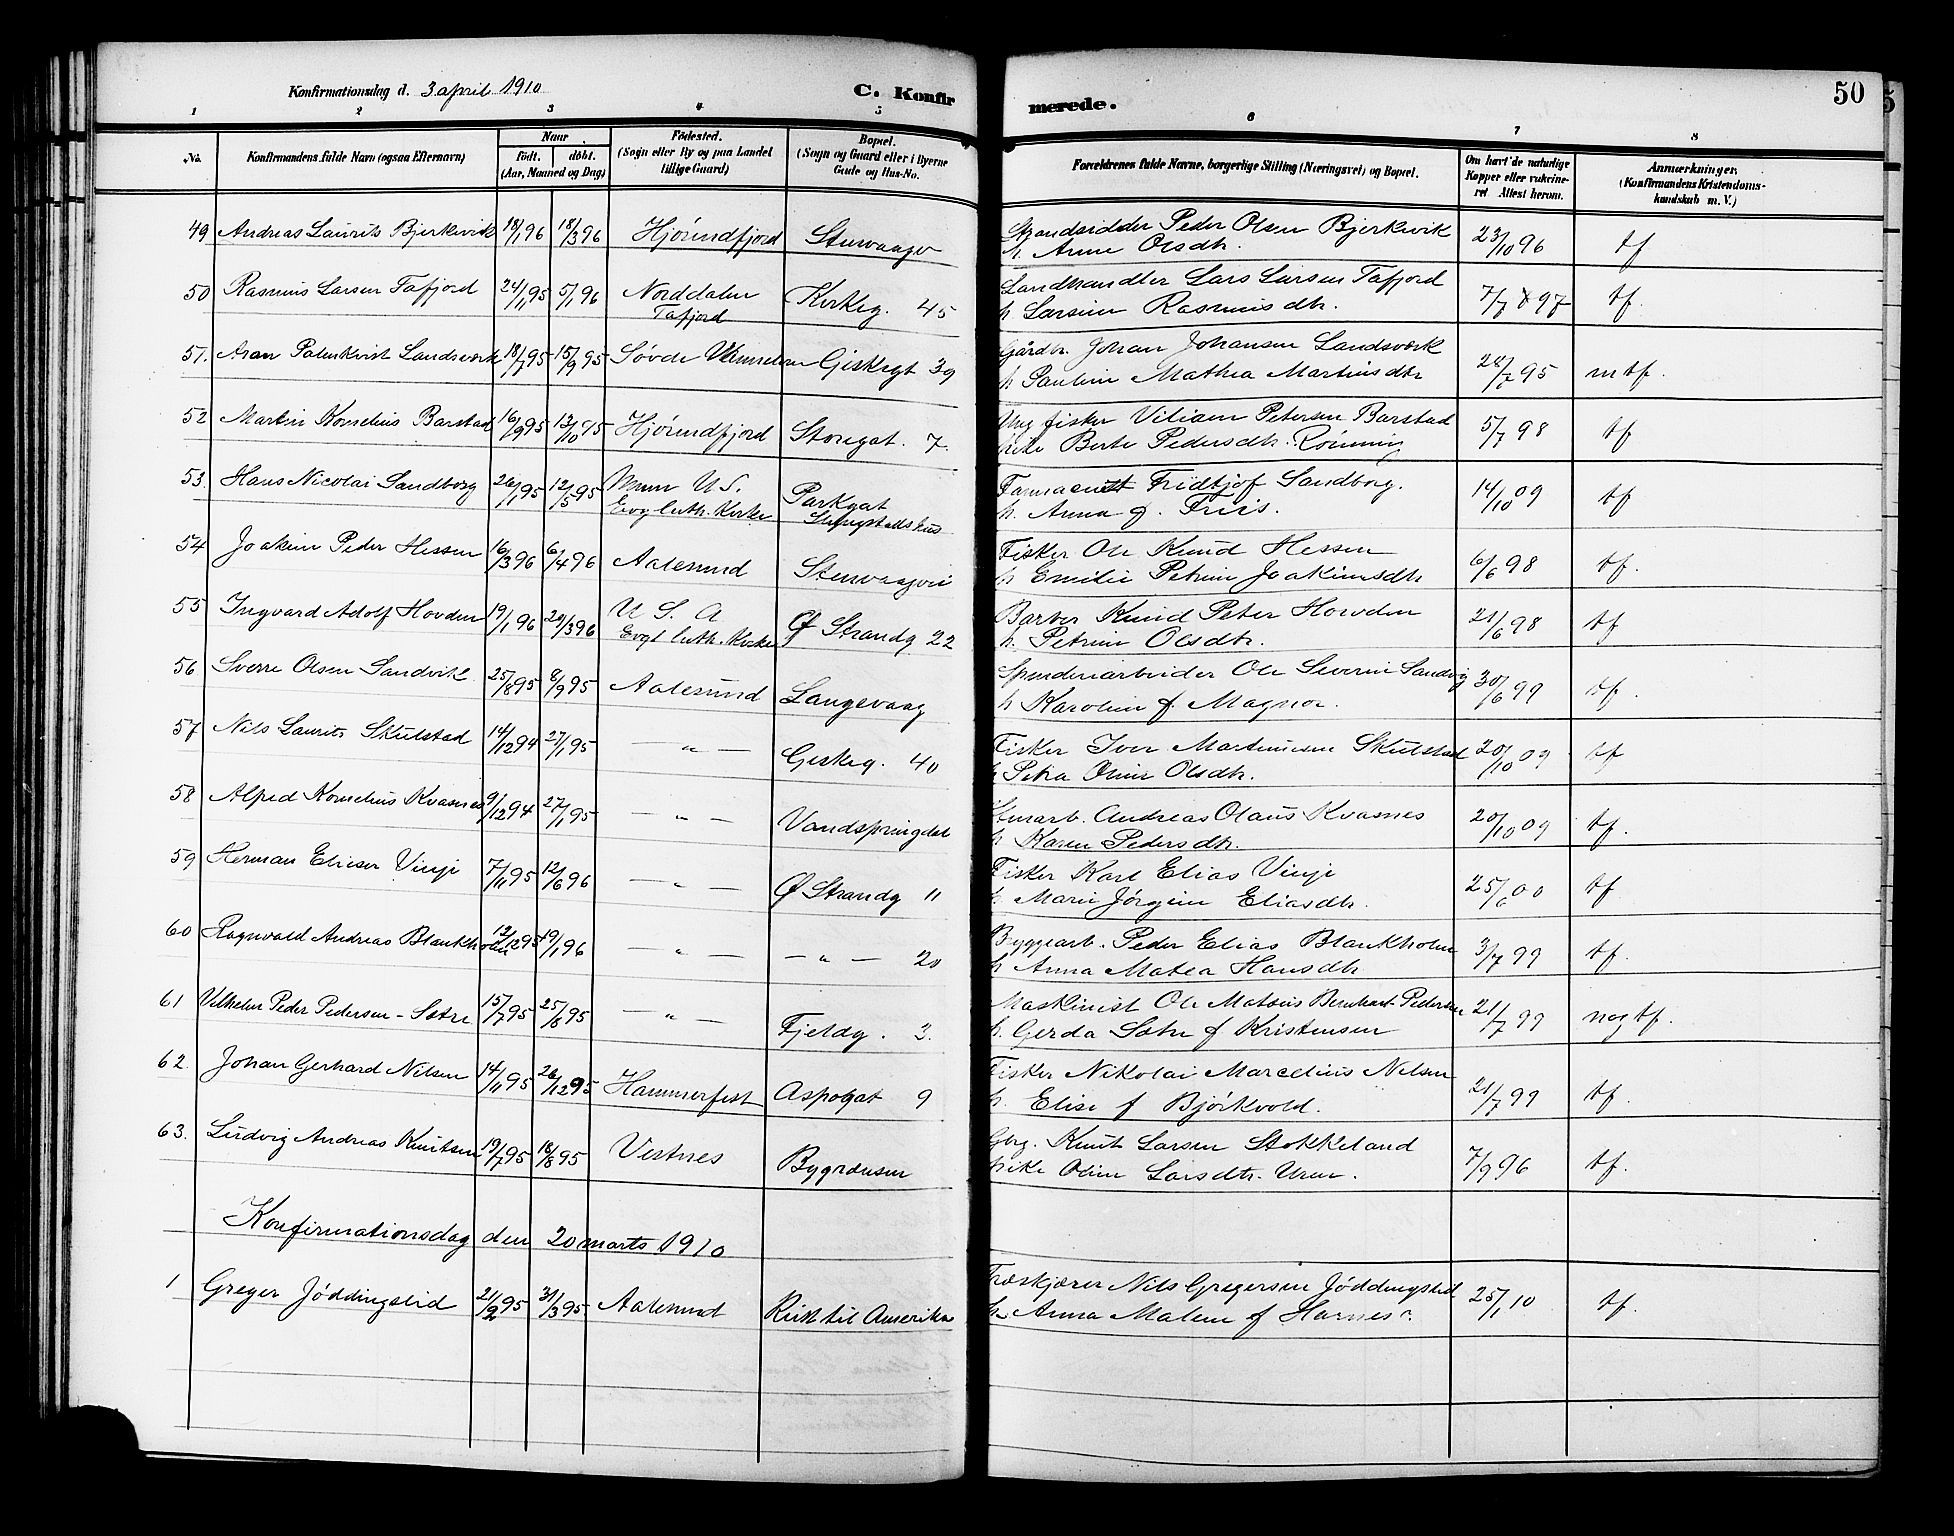 50
Konfirmationsdag d. 3 april 1910
C. Konfir
merede.
1 2 3 4 5 6 7 8
No. Konfirmandens fulde Navn (ogsaa Efternavn) Naar født. døbt. (Aar, Maaned og Dag) Fødested. (Sogn eller By og paa Landet tillige Gaard) Bopæl. (Sogn og Gaard eller i Byerne Gade og Hus-No.
Forældrenes fulde Navne, borgerlige Stilling (Næringsvei) og Bopæl. Om havt de naturlige Kopper eller vakcineret Attest herom. Anmærkninger. (Konfirmandens Kristendomskundskab m. V.)
49 Andreas Laurits Bjerkevik 18/1 96 18/3 96 Hjørundfjord Stenvaagv
Strandsidder Peder Olsen Bjerkevik 23/10 96 tf
h. Anne Olsdtr.
50 Rasmus Larsen Tafjord 24/11 95 5/1 96 Norddalen Kirkeg. 45
Tafjord
Landhandler Lars Larsen Tafjord 7/7 97 tf.
h Larsine Rasmusdtr.
51. Aran Palmkvist Landsverk 18/7 95 15/9 95 Søvde Giskegt 39
Gårdbr. Johan Johansen Landsverk 28/7 95 mtf.
h Pauline Mathea Martinsdtr
52 Martin Kornelius Barstad 16/9 95 13/10 95 Hjørundfjord Storegat. 7.
Ung fisker Viliam Petersen Barstad 5/7 98 tf
Pike Berte Pedersdtr. Rønning
53. Hans Nicolai Sandborg 26/1 95 12/5 95 U.S. Parkgat
Evg luth. Kirke
Farmaceut Fridtjof Sandborg. 14/10 09 tf
h. Anna f. Friis.
54 Joakim Peder Hessen 16/3 96 6/4 96 Aalesund Stenvaagvei
Fisker Ole Knud Hessen 6/6 98 tf.
h Emilie Petrine Joakimsdtr
55 Ingvard Adolf Hovden 19/1 96 20/3 96 U S. A Ø Strandg 22
Evgl luth. Kirke
Barber Knud Peter Hovden 21/6 98 tf
h. Petrine Olsdtr.
56 Sverre Olsen Sandvik 25/8 95 8/9 95 Aalesund Langevaag
Spinderiarbeider Ole Severin Sandvig 30/6 99 tf.
h Karoline f. Magnor.
57 Nils Laurits Skulstad 14/12 94 27/1 95 — " — Giskeg. 40
Fisker Iver Martinusen Skulstad 20/10 09 tf
h Petra Oline Olsdtr.
58 Alfred Kornelius Kvasnes 9/12 94 27/1 95 — " — Vandspringdal
Stenarb. Andreas Olaus Kvasnes 20/10 09 tf.
h Karen Pedersdtr.
59 Herman Elieser Vinje 7/11 95 12/6 96 — " — Ø Strandg 11
Fisker Karl Elias Vinje 25/6 00 tf
h. Marie Jørgine Eliasdtr.
60 Ragnvald Andreas Blankholm 12/12 95 19/1 96 — " — — " — 20
Byggearb. Peder Elias Blankholm 3/7 99 tf.
h Anna Matea Hansdtr
61 Vilhelm Peder Pedersen-Sætre 15/7 95 25/8 95 — " — Fjeldg. 3.
Maskinist Ole Mateus Bernhart Pedersen 21/7 99 nog tf.
h. Gerda Sætre f Kristensen
62. Johan Gerhard Nilsen 14/11 95 26/12 95 Hammerfest Aspøgat 9
Fisker Nikolai Marcelius Nilsen 21/7 99 tf.
h. Elise f Bjørkvold.
63. Ludvig Andreas Knutsen 19/7 95 18/8 95 Vestnes Bygrænsen
Gbrg. Knut Larsen Stokkeland 7/9 96 tf.
Pike Oline Larsdtr.
Konfirmationsdag den 20 marts 1910
1 Greger Jøddingslid 21/2 95 31/3 95 Aalesund Reist til Amerika
Træskjærer Nils Gregersen Jøddingslid 25/1 10 tf.
h. Anna Malene f Harnes.